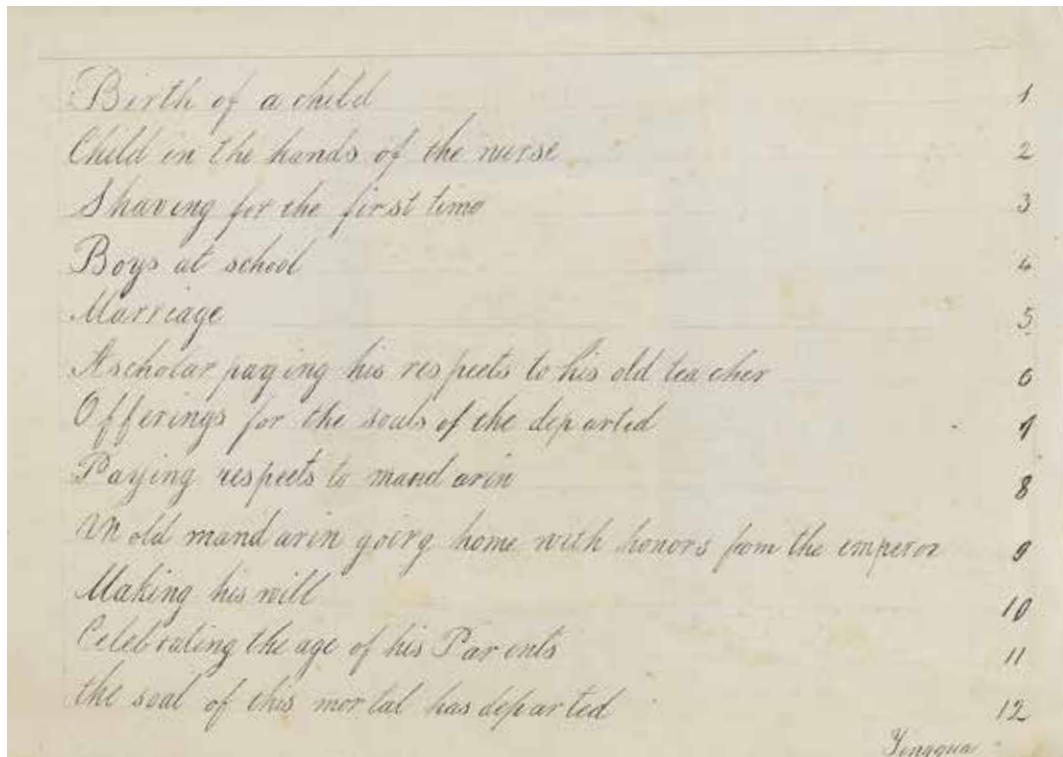 Birth of a child 1
Child in the hands of the nurse 2
Shaving for the first time 3
Boys at school 4
Marriage 5
A scholar paying his respects to his old teacher 6
Offerings for the souls of the departed 7
Paying respects to mandarin 8
An old mandarin going home with honors from the emperor 9
Making his will 10
Celebrating the age of his Parents 11
the soal of this mortal has departed 12
Tingqua